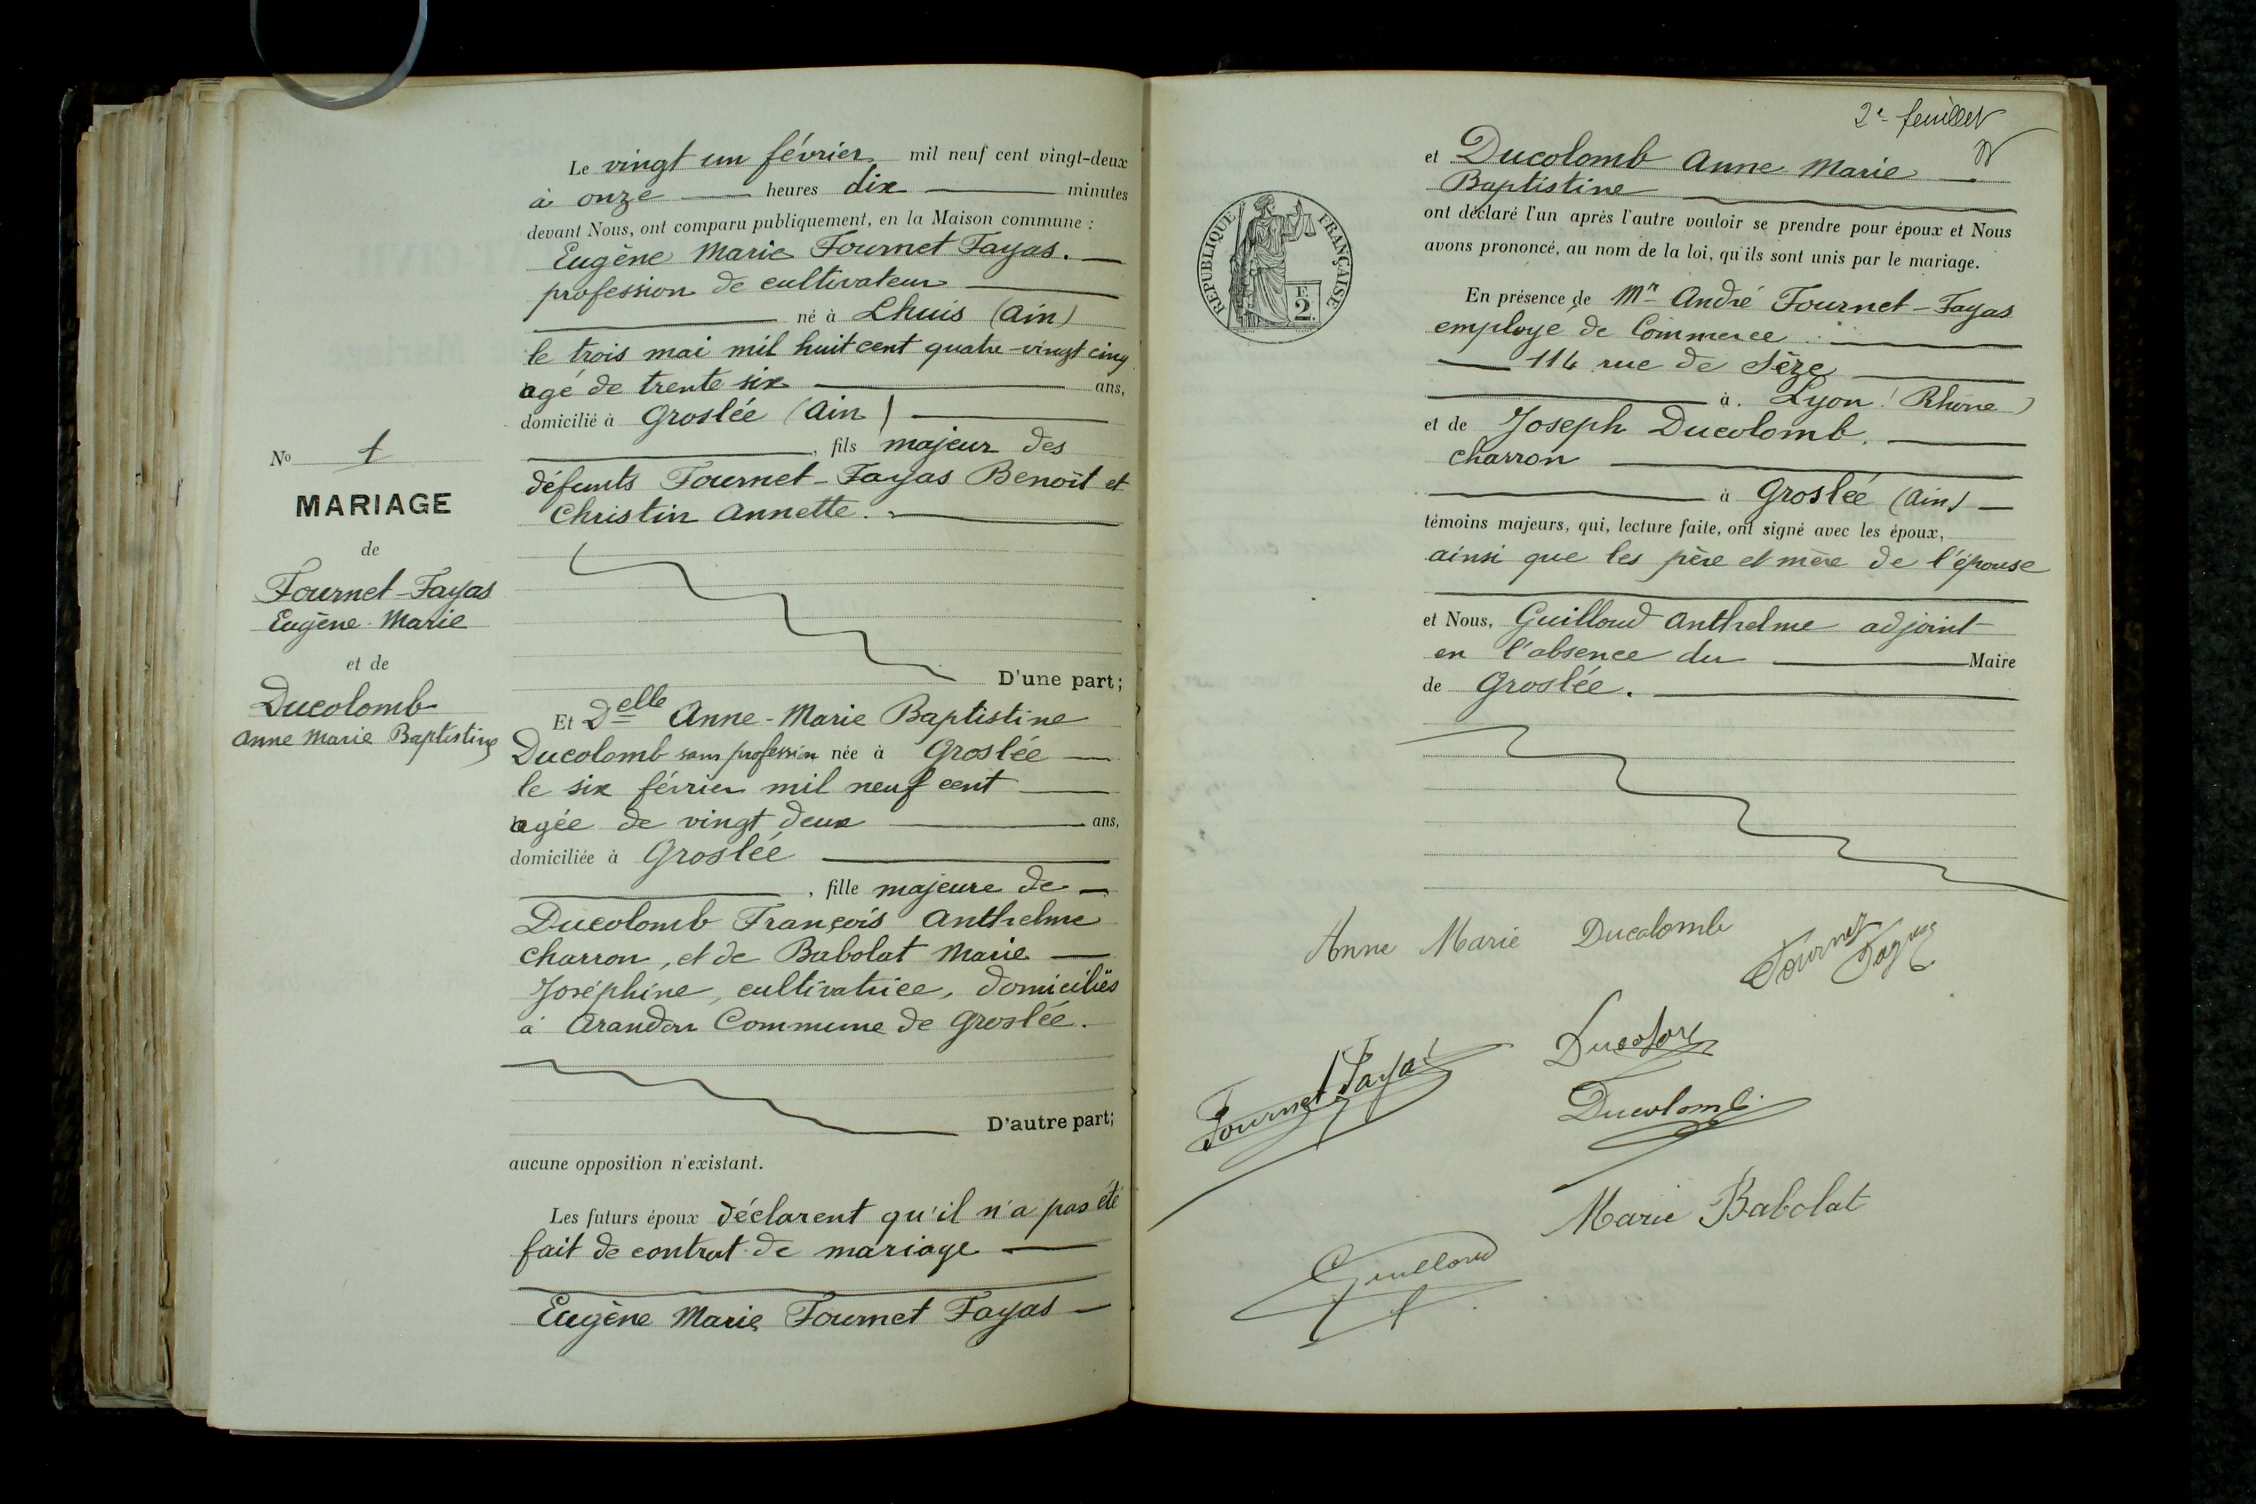 Le vingt un février mil neuf cent vingt-deux
à onze heures dix minutes
devant Nous, ont comparu publiquement, en la Maison commune :
Eugène Marie Fournet Fayas.
profession de cultivateur
né à Lhuis (Ain)
le trois mai mil huit cent quatre-vingt cinq
agé de trente six ans,
domicilié à Groslée (Ain)
, fils majeur des
défunts Fournet-Fayas Benoît et
Christin Annette.
D'une part;
Et Delle Anne-Marie Baptistine
Ducolomb sans profession née à Groslée
le six février mil neuf cent
agée de vingt deux ans,
domiciliée à Groslée
, fille majeure de
Ducolomb François Anthelme
charron, et de Babolat Marie
Joséphine, cultivatrice, domiciliés
à Arandon Commune de Groslée.
D'autre part;
aucune opposition n'existant.
Les futurs époux déclarent qu'il n'a pas été
fait de contrat de mariage
Eugène Marie Fournet Fayas
No 1
MARIAGE
de
Fournet-Fayas
Eugène-Marie
et de
Ducolomb
Anne Marie Baptistine
2e feuillet
et Ducolomb Anne Marie
Baptistine
ont déclaré l'un après l'autre vouloir se prendre pour époux et Nous
avons prononcé, au nom de la loi, qu'ils sont unis par le mariage.
En présence de Mr André Fournet-Fayas
employé de Commerce
114 rue de Sèze
à Lyon (Rhône)
et de Joseph Ducolomb.
charron
à Groslée (Ain)
témoins majeurs, qui, lecture faite, ont signé avec les époux,
ainsi que les père et mère de l'épouse
et Nous, Guilloud Anthelme adjoint
en l'absence du Maire
de Groslée.
REPUBLIQUE FRANÇAISE
E
2
Anne Marie Ducolomb
Fournet Fayas
Ducolomb
Fournet Fayas
Ducolomb
Marie Babolat
Guilloud